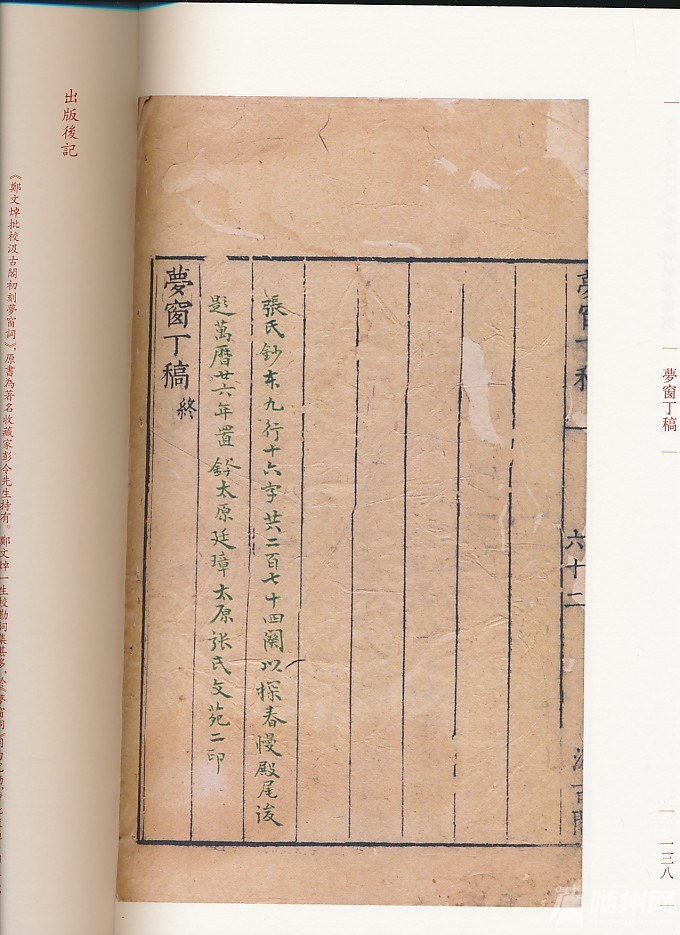 夢窗丁稿
一三八
夢窗丁稿
六十二
張氏鈔本九行十六字共二百七十四闋以探春慢殿尾後
題萬曆廿六年置鈐太原廷璋太原張氏文苑二印
夢窗丁稿終
出版後記
《鄭文焯批校汲古閣初刻夢窗詞》，原書為著名收藏家彭令先生持有。鄭文焯一生校勘詞集甚多，